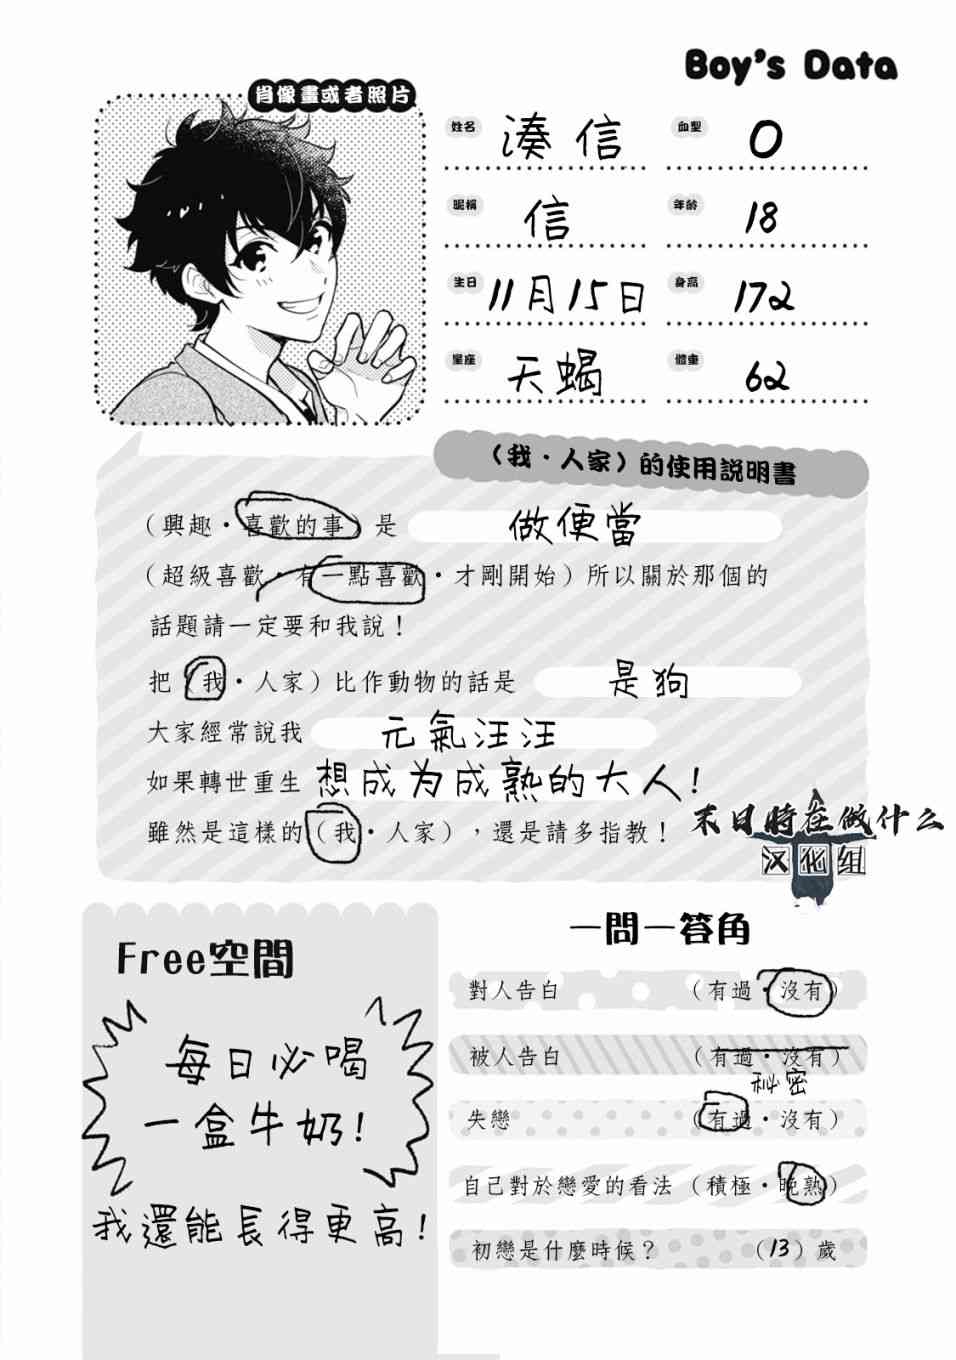 Boy's Data
肖像畫或者照片
姓名 湊 信
血型 O
昵稱 信
年齡 18
生日 11月15日
身高 172
星座 天蝎
體重 62
（我・人家）的使用説明書
（興趣・喜歡的事）是 做便當
（超級喜歡・有一點喜歡・才剛開始）所以關於那個的
話題請一定要和我說！
把（我・人家）比作動物的話是 是狗
大家經常說我 元氣汪汪
如果轉世重生 想成为成熟的大人！
雖然是這樣的（我・人家），還是請多指教！
末日時在做什么
汉化组
Free空間
每日必喝
一盒牛奶！
我還能長得更高！
一問一答角
對人告白 （有過・沒有）
被人告白 （有過・沒有）
秘密
失戀 （有過・沒有）
自己對於戀愛的看法 （積極・晚熟）
初戀是什麼時候？ （13）歲